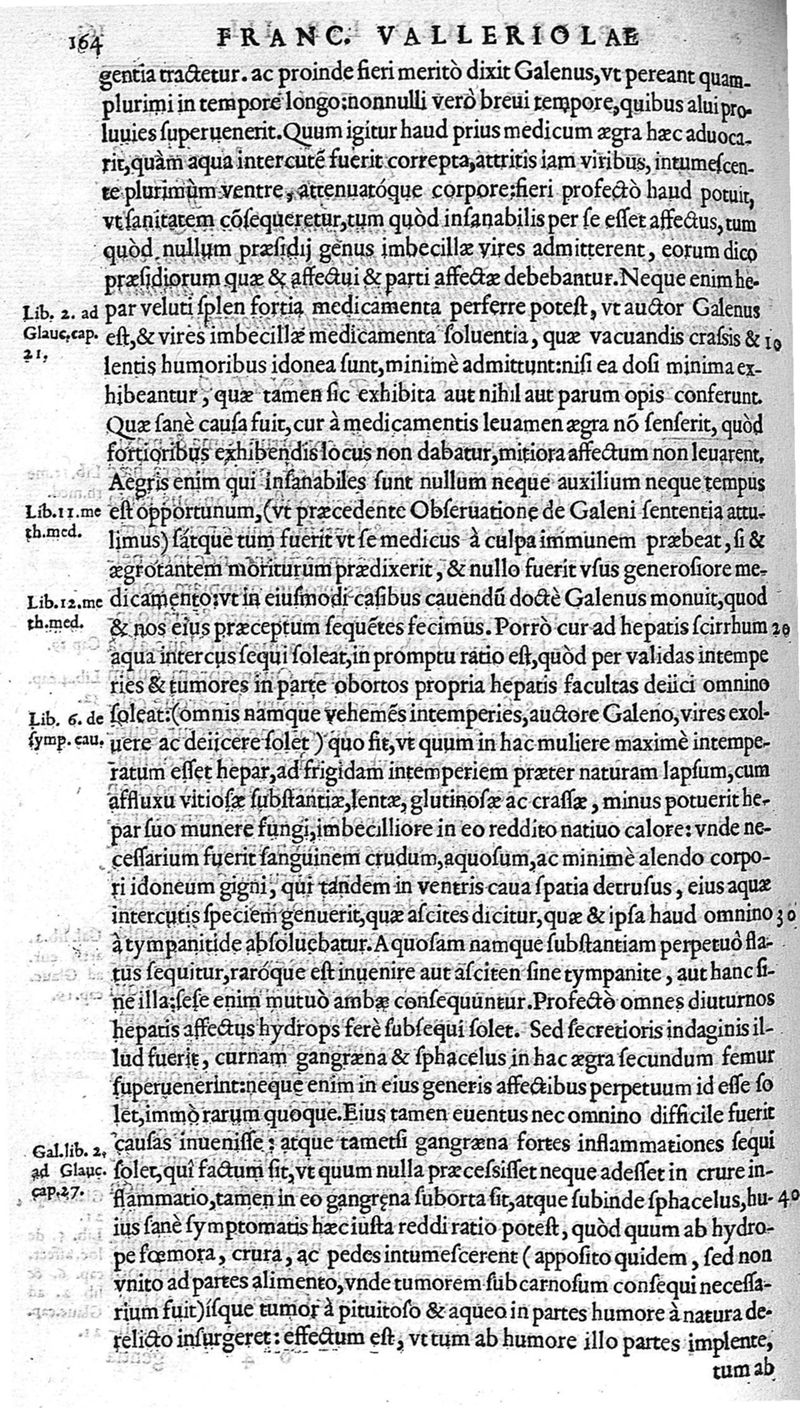 164 FRANC. VALLERIOLAE
gentia tractetur. ac proinde fieri meritò dixit Galenus,vt pereant quam-
plurimi in tempore longo:nonnulli verò breui tempore,quibus alui pro-
luuies ſuperuenerit.Quum igitur haud prius medicum ægra hæc aduoca-
rit,quàm aqua intercutẽ fuerit correpta,attritis iam viribus, intumeſcen-
te plurimùm ventre, attenuatóque corpore:fieri profectò haud potuit,
vt ſanitatem cõſequeretur,tum quòd inſanabilis per ſe eſſet affectus,tum
quòd nullum præſidij genus imbecillæ vires admitterent, eorum dico
præſidiorum quæ & affectui & parti affectæ debebantur.Neque enim he-
Lib. 2. ad par veluti ſplen fortia medicamenta perferre poteſt, vt auctor Galenus
Glauc.cap. eſt,& vires imbecillæ medicamenta ſoluentia, quæ vacuandis craſsis & 10
21. lentis humoribus idonea ſunt,minimè admittunt:niſi ea doſi minima ex-
hibeantur, quæ tamen ſic exhibita aut nihil aut parum opis conferunt.
Quæ ſanè cauſa fuit,cur à medicamentis leuamen ægra nõ ſenſerit, quòd
fortioribus exhibendis locus non dabatur,mitiora affectum non leuarent.
Aegris enim qui inſanabiles ſunt nullum neque auxilium neque tempus
Lib.11.me eſt opportunum,(vt præcedente Obſeruatione de Galeni ſententia attu-
th.med. limus) ſátque tum fuerit vt ſe medicus à culpa immunem præbeat, ſi &
ægrotantem moriturum prædixerit, & nullo fuerit vſus generoſiore me-
Lib.12.me dicamento:vt in eiuſmodi caſibus cauendũ doctè Galenus monuit,quod
th.med. & nos eius præceptum ſequẽtes fecimus. Porrò cur ad hepatis ſcirrhum 20
aqua intercus ſequi ſoleat,in promptu ratio eſt,quòd per validas intempe
ries & tumores in parte obortos propria hepatis facultas deiici omnino
Lib. 6. de ſoleat:(omnis namque vehemẽs intemperies,auctore Galeno,vires exol-
ſymp. cau. uere ac deiicere ſolet ) quo fit,vt quum in hac muliere maximè intempe-
ratum eſſet hepar,ad frigidam intemperiem præter naturam lapſum,cum
affluxu vitioſæ ſubſtantiæ,lentæ, glutinoſæ ac craſſæ, minus potuerit he-
par ſuo munere fungi,imbecilliore in eo reddito natiuo calore: vnde ne-
ceſſarium fuerit ſanguinem crudum,aquoſum,ac minimè alendo corpo-
ri idoneum gigni, qui tandem in ventris caua ſpatia detruſus, eius aquæ
intercutis ſpeciem genuerit,quæ aſcites dicitur,quæ & ipſa haud omnino 30
à tympanitide abſoluebatur.Aquoſam namque ſubſtantiam perpetuò fla-
tus ſequitur,raróque eſt inuenire aut aſciten ſine tympanite, aut hanc ſi-
ne illa:ſeſe enim mutuò ambæ conſequuntur.Profectò omnes diuturnos
hepatis affectus hydrops ferè ſubſequi ſolet. Sed ſecretioris indaginis il-
lud fuerit, curnam gangræna & ſphacelus in hac ægra ſecundum femur
ſuperuenerint:neque enim in eius generis affectibus perpetuum id eſſe ſo
let,immò rarum quoque.Eius tamen euentus nec omnino difficile fuerit
Gal.lib. 2. cauſas inueniſſe: atque tametſi gangræna fortes inflammationes ſequi
ad Glauc. ſolet,quî factum ſit,vt quum nulla præceſsiſſet neque adeſſet in crure in-
cap.27. flammatio,tamen in eo gangręna ſuborta ſit,atque ſubinde ſphacelus,hu- 40
ius ſanè ſymptomatis hæc iuſta reddi ratio poteſt, quòd quum ab hydro-
pe fœmora, crura, ac pedes intumeſcerent ( appoſito quidem, ſed non
vnito ad partes alimento,vnde tumorem ſubcarnoſum conſequi neceſſa-
rium fuit)iſque tumor à pituitoſo & aqueo in partes humore à natura de-
relicto inſurgeret: effectum eſt, vt tum ab humore illo partes implente,
tum ab